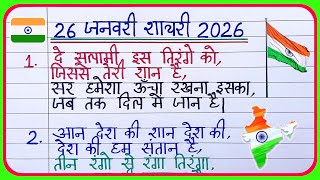 26 जनवरी शायरी 2026
1. दे सलामी इस तिरंगे को,
जिससे तेरी शान है,
सर हमेशा ऊँचा रखना इसका,
जब तक दिल में जान है।
2. आन देश की शान देश की,
देश की हम संतान है,
तीन रंगो से रंगा तिरंगा,